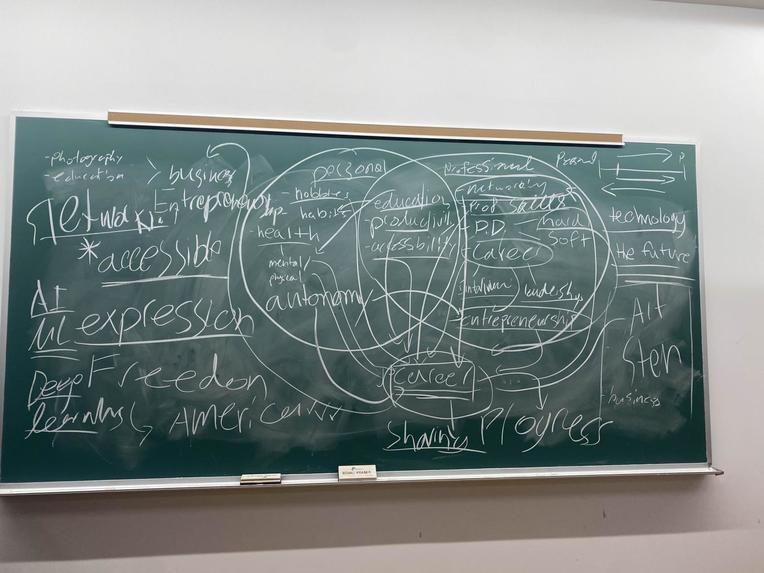 - photography
- education
> business
Entrepreneur
* accessible
AI
ML
expression
Deep
learning
Freedon
America
personal
- hobbies
habits
- health
mental
physical
autonomy
education
- productivity
- accessibility
Professional
networking
skills
- P.D.
hard
soft
career
leadership
entrepreneurship
career
sharing
Progress
P
technology
the future
Art
Stem
- business